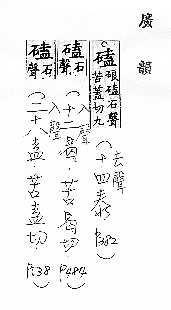 廣韻
磕 硠磕石聲苦蓋切九 去聲(十四泰 P382)
磕 石聲 入聲(十二曷.苦曷切. P484)
磕 石聲 入聲(二十八盍.苦盍切. P538)